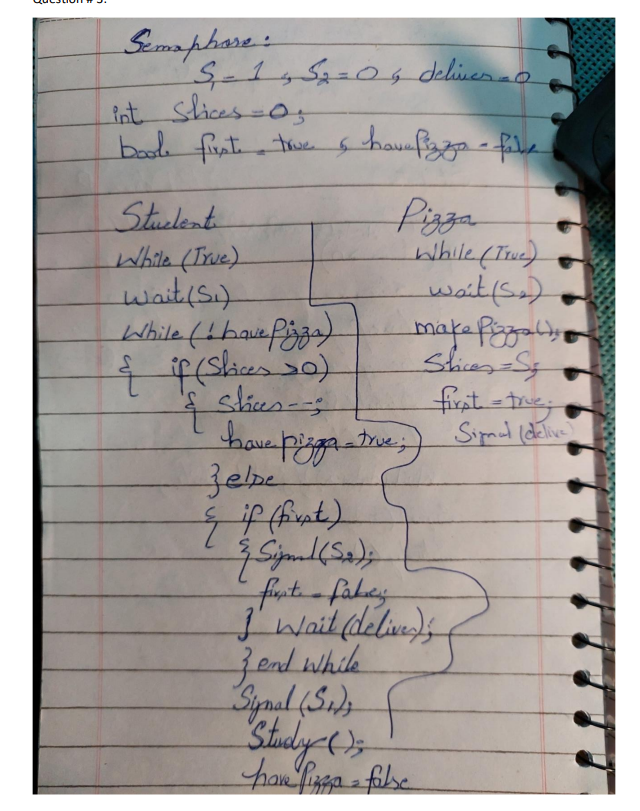 Question # 3:
Semaphore:
S1 = 1, S2 = 0, deliver = 0
int Slices = 0;
bool first = true, havePizza = false
Student
While (True)
wait(S1)
While (!havePizza)
{ if (Slices > 0)
{ Slices--;
have pizza = true;
} else
{ if (first)
{ Signal(S2);
first = false;
} wait(deliver);
} end while
Signal(S1);
Study();
havePizza = false
Pizza
While (True)
wait(S2)
make Pizza();
Slices = S;
first = true;
Signal (deliver)